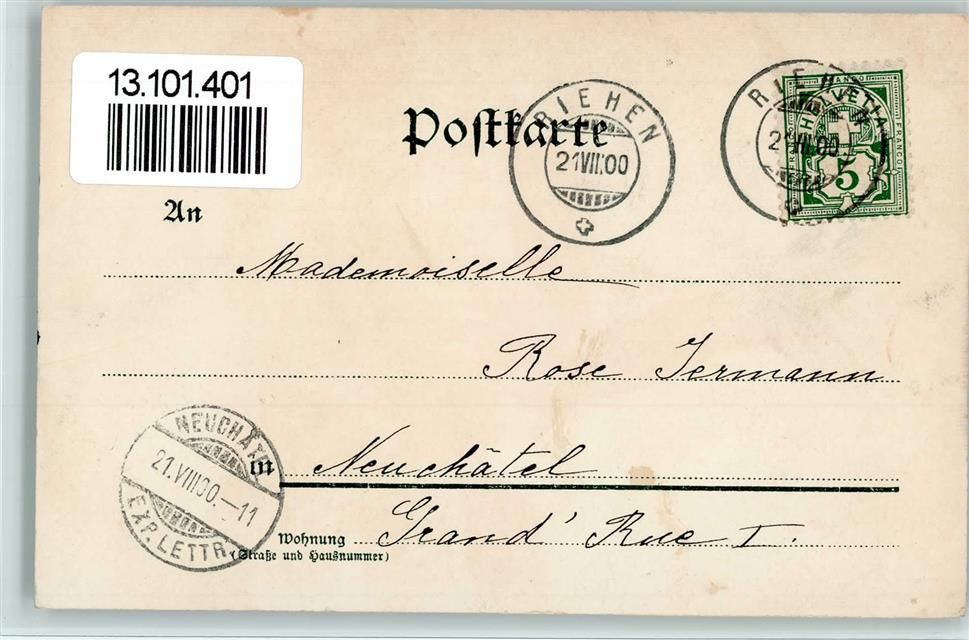 13.101.401
Postkarte
RIEHEN
21 VIII 00
RIEHEN
21 VIII 00
HELVETIA
FRANCO
FRANCO
5
An
Mademoiselle
Rose Jermann
NEUCHÂTEL
21. VIII 00. – 11
EXP. LETTR.
in Neuchâtel
Wohnung Grand' Rue 1.
(Straße und Hausnummer)